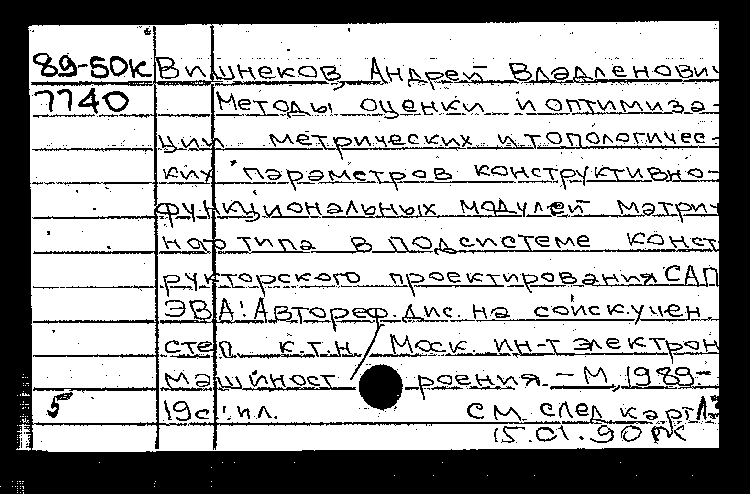 89-50К Вишнеков, Андрей Владленович
7740 Методы оценки и оптимиза-
ции метрических и топологичес-
ких параметров конструктивно-
функциональных модулей матрич
ного типа в подсистеме конст
рукторского проектирования САП
ЭВА: Автореф. дис. на соиск. учен.
степ. к.т.н. / Моск. ин-т электрон
машиност роения. - М, 1989-
5 19с.: ил. См. след карт
15.01.90